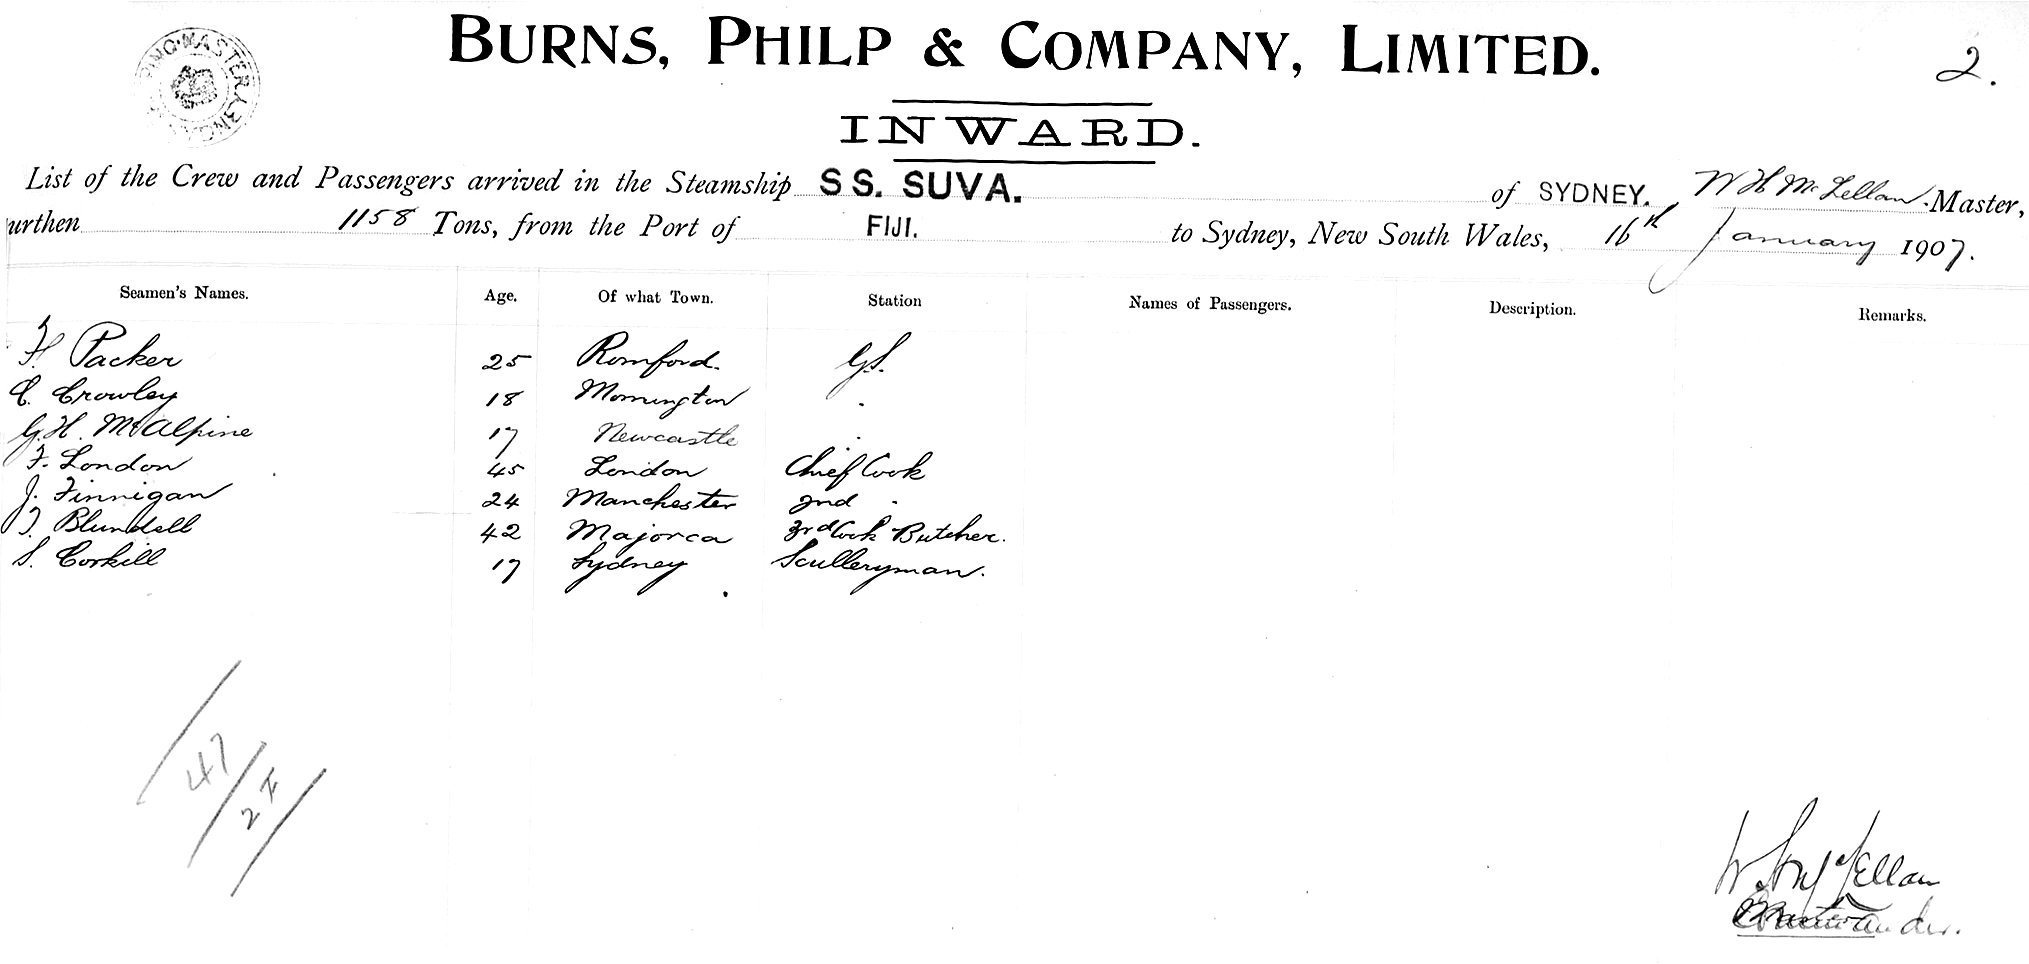 BURNS, PHILP & COMPANY, LIMITED.
2.
INWARD.
List of the Crew and Passengers arrived in the Steamship SS. SUVA. of SYDNEY. W H McLellan. Master,
urthen 1158 Tons, from the Port of FIJI. to Sydney, New South Wales, 16th January 1907.
Seamen's Names. Age. Of what Town. Station Names of Passengers. Description. Remarks.
H. Packer 25 Romford. G.S.
C. Crowley 18 Mornington "
G.H. McAlpine 17 Newcastle "
F. London 45 London Chief Cook
J. Finnigan 24 Manchester 2nd "
T. Blundell 42 Majorca 3rd Cook Butcher.
S. Corkill 17 Sydney Sculleryman.
47
2
W. H. McLellan